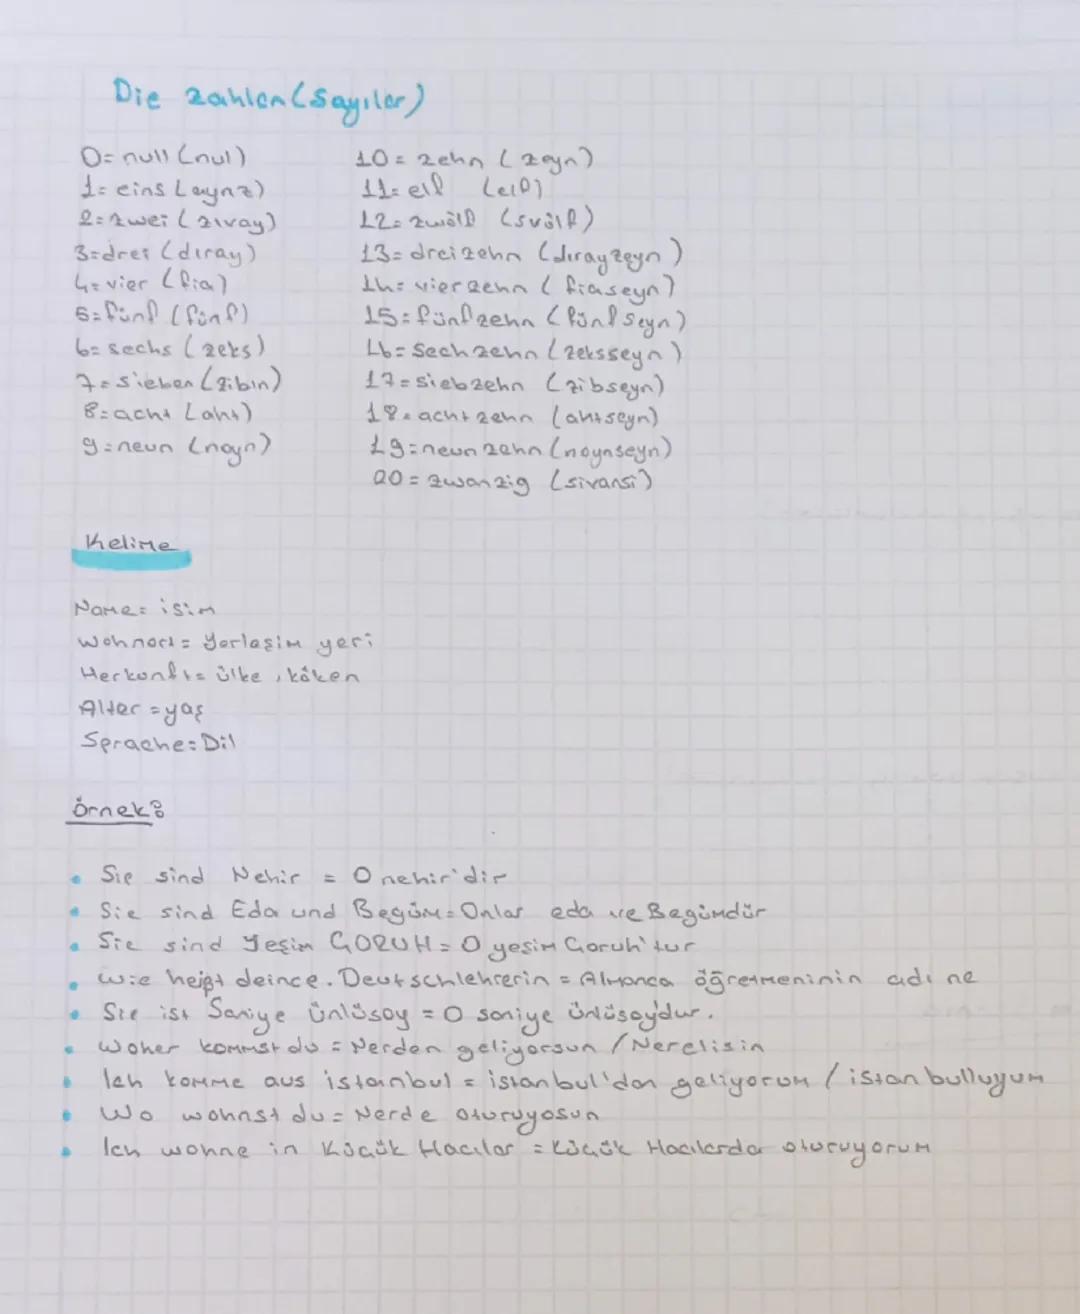 Die zahlen (Sayılar)
0= null (nul)
1= eins (aynz)
2= zwei (zıvay)
3=drei (dıray)
4= vier (fia)
5= fünf (fünf)
6= sechs (zeks)
7= sieben (zibin)
8= acht (aht)
9= neun (noyn)
10= zehn (zeyn)
11= elf (elf)
12= zwölf (svölf)
13= dreizehn (dırayzeyn)
14= vierzehn (fiaseyn)
15= fünfzehn (fünfseyn)
16= Sechzehn (zeksseyn)
17= siebzehn (zibseyn)
18= achtzehn (ahtseyn)
19= neunzehn (noynseyn)
20= zwanzig (sivansi)
Kelime
Name= isim
Wohnort= Yerleşim yeri
Herkunft= ülke, köken
Alter = yaş
Sprache= Dil
Örnek:
• Sie sind Nehir = O nehir'dir
• Sie sind Eda und Begüm= Onlar eda ve Begümdür
• Sie sind Yeşim GORUH = O yeşim Goruh'tur
• Wie heißt deince. Deutschlehrerin = Almanca öğretmeninin adı ne
• Sie ist Saniye Ünlüsoy = O saniye ünlüsoy'dur.
• Woher kommst du = Nerden geliyorsun / Nerelisin
• Ich komme aus istanbul = istanbul'dan geliyorum / istanbulluyum
• Wo wohnst du= Nerde oturuyosun
• Ich wohne in Küçük Hacılar = Küçük Hacılarda oturuyorum